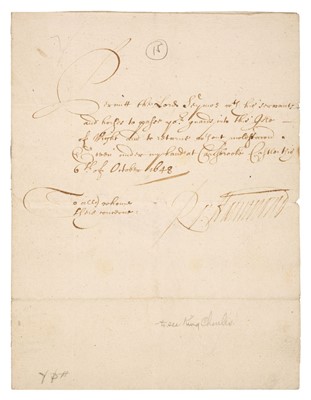 15
Permitt the Lord Seymor wth his servants
and horses to passe yor guards into this Isle
of Wight and to returne without molestacon
Given under my hand at Carisbrooke Castle this
6th of October 1648
To all whome
this concerne
Ro: Hammond
King Charles